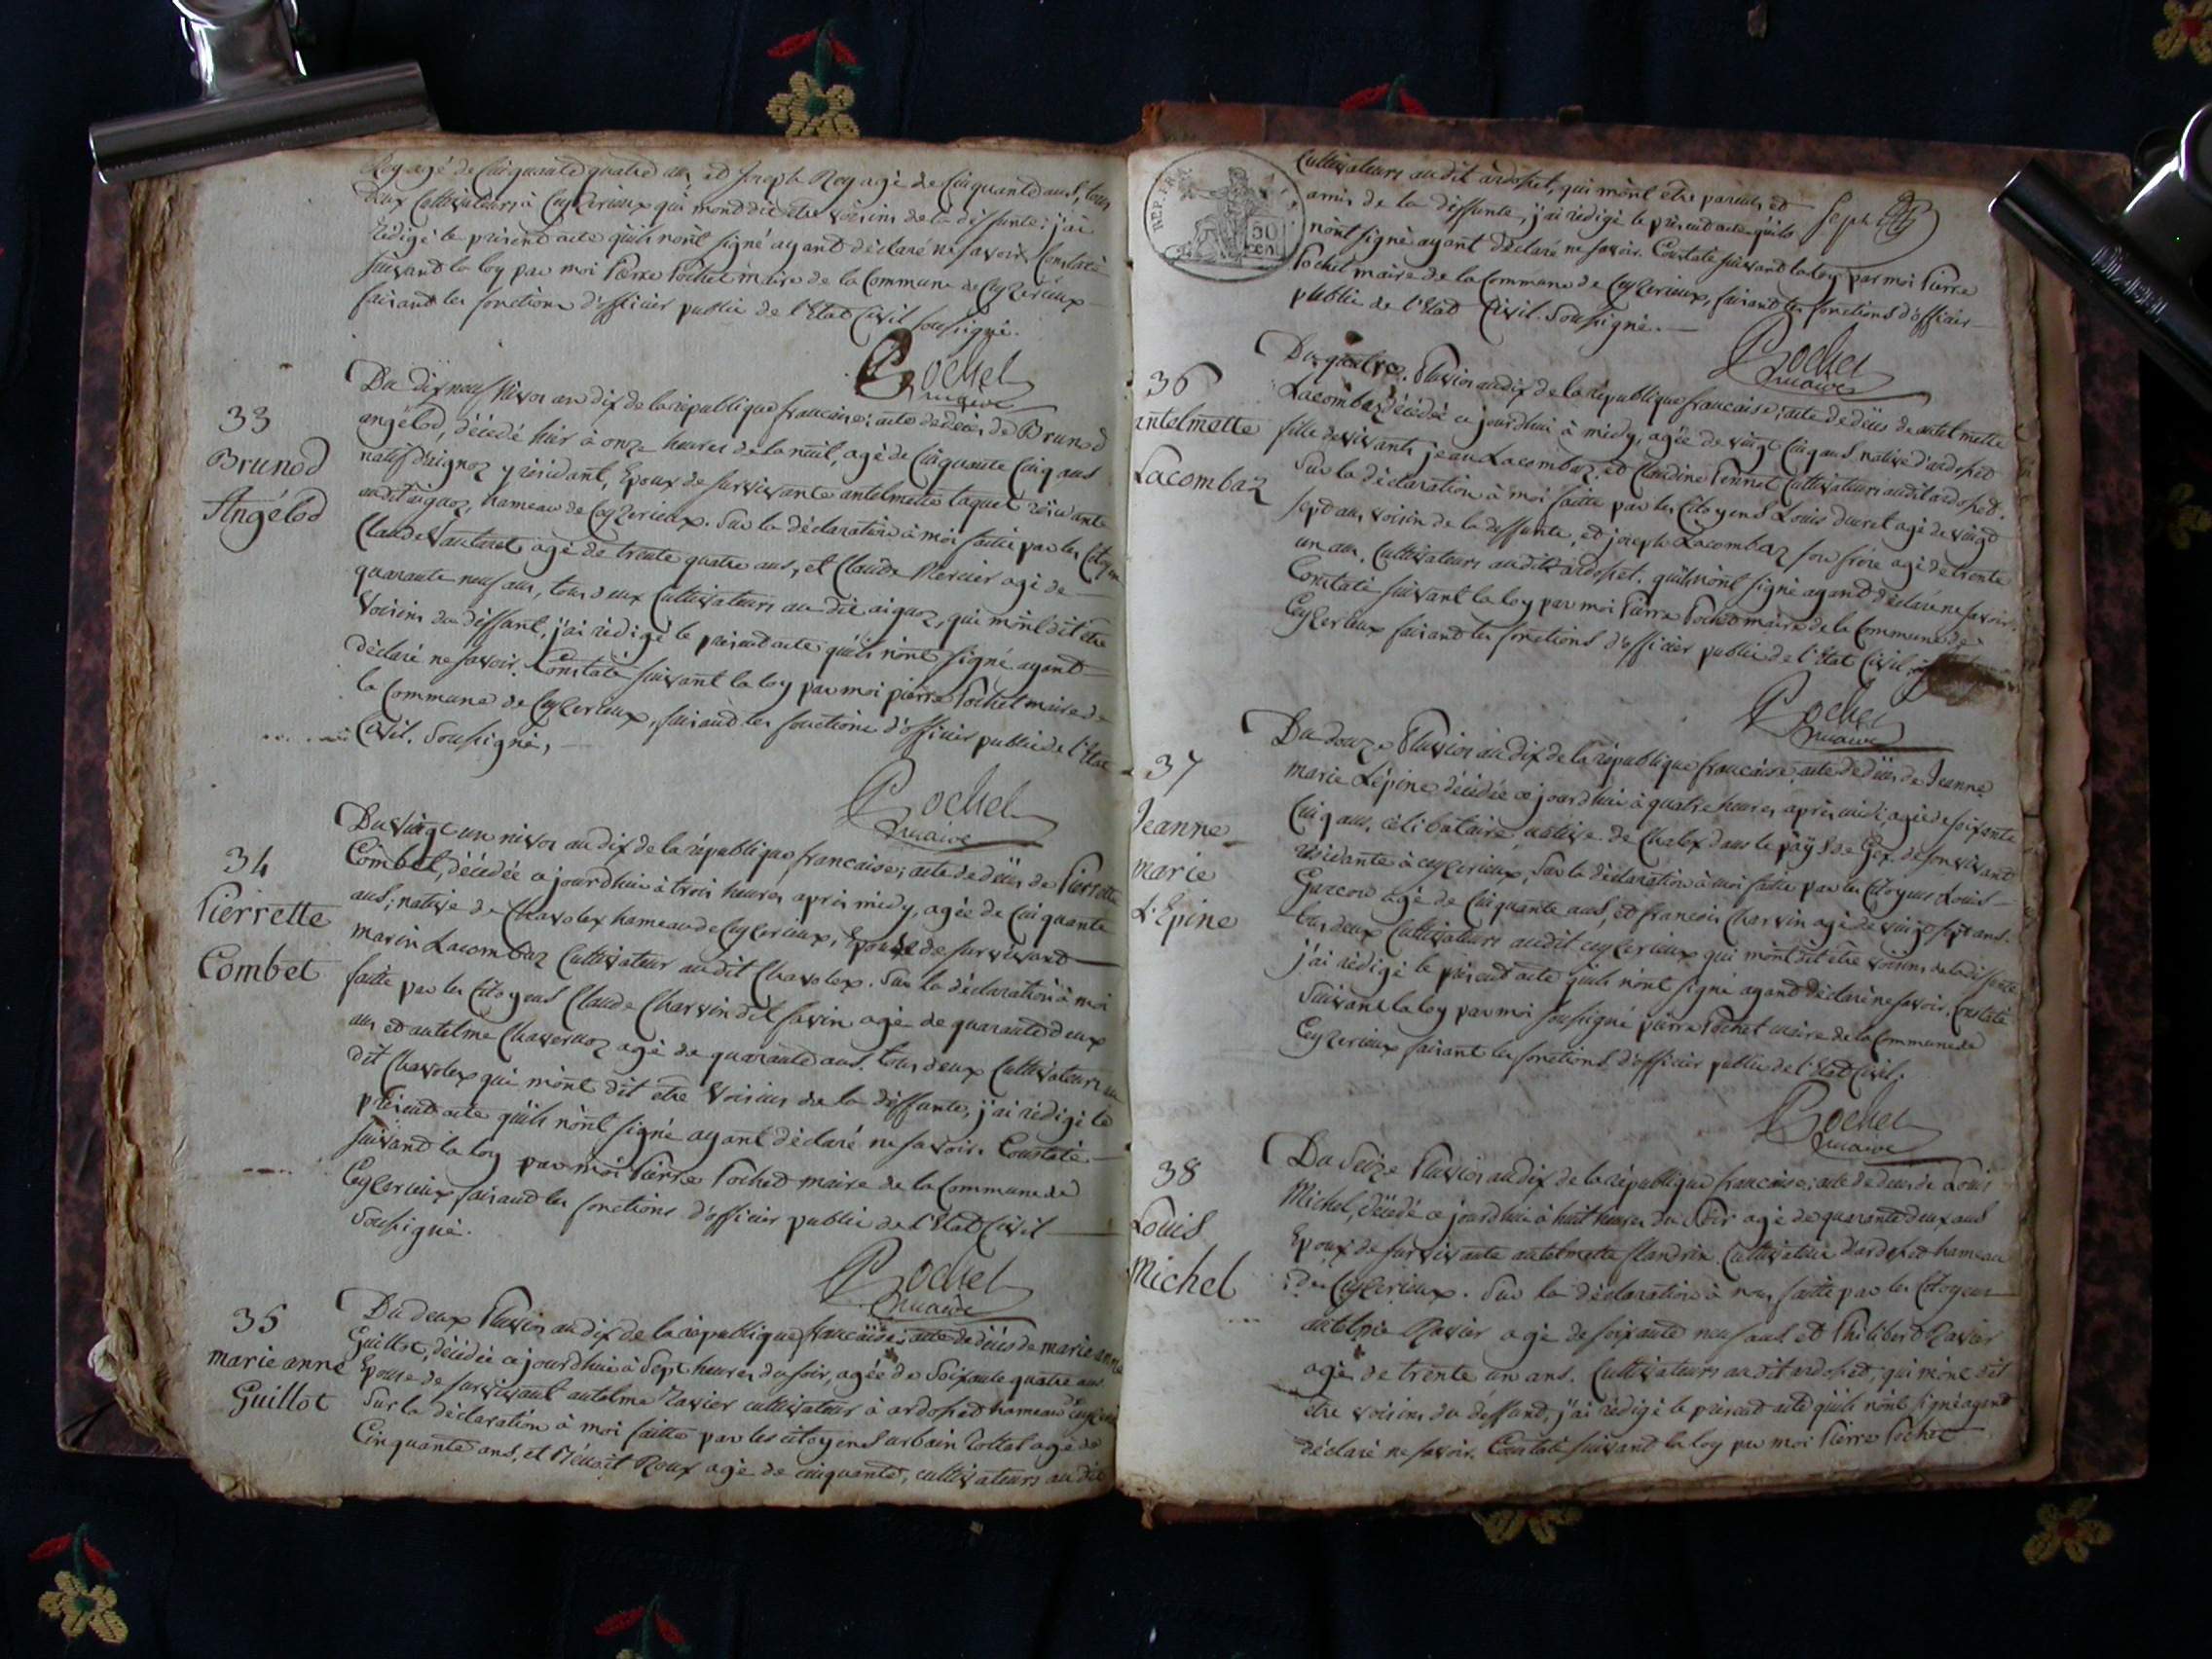 Roy agé de Cinquante quatre ans et Joseph Roy agé de Cinquante ans, tous
deux Cultivateurs à Ceyzerieux qui mont dit etre voisins de la deffunte; j'ai
rédigé le présent acte quils nont signé ayant déclaré ne savoir. Constaté
suivant la loy par moi Pierre Pochet maire de la Commune de Ceyzerieux
faisant les fonctions d'officier public de l'Etat Civil soussigné.
Pochet
maire
33
Brunod
Angélod
Du dix neuf Nivos an dix de la république francaise; acte de décès de Brunod
angélod, décédé hier à onze heures de la nuit, agé de Cinquante Cinq ans
natif d'aignoz y résidant, Epoux de survivante antelmette taquet résidante
audit aignoz, hameau de Ceyzerieux. Sur la déclaration à moi faitte par les Citoyens
Claude Vautaret agé de trente quatre ans, et Claude Mercier agé de
quarante neuf ans, tous deux Cultivateurs au dit aignoz, qui m'ont dit être
Voisins du deffunt, j'ai rédigé le présent acte quils n'ont signé ayant
déclaré ne savoir. Constaté suivant la loy par moi pierre Pochet maire de
la Commune de Ceyzerieux, faisant les fonctions d'officier public de l'Etat
Civil. Soussigné,
Pochet
maire
34
Pierrette
Combet
Du Vingt un nivos an dix de la république francaise; acte de décès de Pierrette
Combet, décédée ce jourdhui à trois heures après midy, agée de Cinquante
ans; native de Chavolex hameau de Ceyzerieux, Epouse de survivant
marin Lacombaz Cultivateur audit Chavolex. Sur la déclaration à moi
faitte par les Citoyens Claude Charvin dit savin agé de quarante deux
ans et antelme Chavernoz agé de quarante ans. tous deux Cultivateurs au
dit Chavolex qui m'ont dit etre Voisins de la deffunte, j'ai rédigé le
présent acte quils n'ont signé ayant déclaré ne savoir. Constaté
suivant la loy par moi Pierre Pochet maire de la Commune de
Ceyzerieux faisant les fonctions d'officier public de l'Etat Civil
Soussigné.
Pochet
maire
35
marie anne
Guillot
Du deux Pluvios an dix de la république francaise; acte de décès de marie anne
Guillot, décédée ce jourdhui à Sept heures du soir, agée de Soixante quatre ans
Epouse de survivant antelme Ravier cultivateur à ardosset hameau de Ceyzerieux
Sur la déclaration à moi faitte par les citoyens urbain Tottet agé de
Cinquante ans, et Bénoit Roux agé de cinquante, cultivateurs au dit
REP. FRA.
50
cen.
Cultivateurs audit ardosset, qui m'ont etre parents et
amis de la deffunte, j'ai rédigé le présent acte quils
n'ont signé ayant déclaré ne savoir. Constaté suivant la loy par moi Pierre
Pochet maire de la Commune de Ceyzerieux, faisant les fonctions d'officier
public de l'Etat Civil. Soussigné.
Pochet
maire
36
antelmette
Lacombaz
Du quatre Pluvios an dix de la république francaise; acte de décès de antelmette
Lacombaz décédée ce jourdhui à midy, agée de vingt Cinq ans native d'ardosset
fille de vivants jean Lacombaz et Claudine Perret Cultivateurs audit ardosset.
Sur la déclaration à moi faitte par les Citoyens Louis ducret agé de vingt
sept ans, voisin de la deffunte, et joseph Lacombaz son frère agé de trente
un an. Cultivateurs audit ardosset. quils n'ont signé ayant déclaré ne savoir.
Constaté suivant la loy par moi Pierre Pochet maire de la Commune de
Ceyzerieux faisant les fonctions d'officier public de l'Etat Civil.
Pochet
maire
37
Jeanne
marie
L'Epine
Du douze Pluvios an dix de la république francaise, acte de décès de Jeanne
marie Lépine décédée ce jourdhui à quatre heures après midi, agée de soixante
Cinq ans, célibataire, native de Chalex dans le pays de Gex, de son vivant
résidante à ceyzerieux, Sur la déclaration à moi faitte par les Citoyens Louis
Garcon agé de Cinquante ans, et francois Charvin agé de vingt sept ans.
tous deux Cultivateurs audit ceyzerieux qui m'ont dit etre voisins de la deffunte
j'ai rédigé le présent acte quils n'ont signé ayant déclaré ne savoir. Constaté
Suivant la loy par moi soussigné pierre Pochet maire de la Commune de
Ceyzerieux faisant les fonctions d'officier public de l'Etat Civil.
Pochet
maire
38
Louis
Michel
Du Seize Pluvios an dix de la république francaise; acte de deces de Louis
Michel, décédé ce jourdhui à huit heures du Soir agé de quarante deux ans
Epoux de survivante antelmette flandrin. Cultivateur d'ardosset hameau
de Ceyzerieux. Sur la déclaration à nous faitte par les Citoyens
antelme Ravier agé de soixante neuf ans et Philibert Ravier
agé de trente un ans. Cultivateurs audit ardosset, qui m'ont dit
etre voisins du deffunt, j'ai rédigé le présent acte quils n'ont signé ayant
déclaré ne savoir. Constaté suivant la loy par moi Pierre Pochet